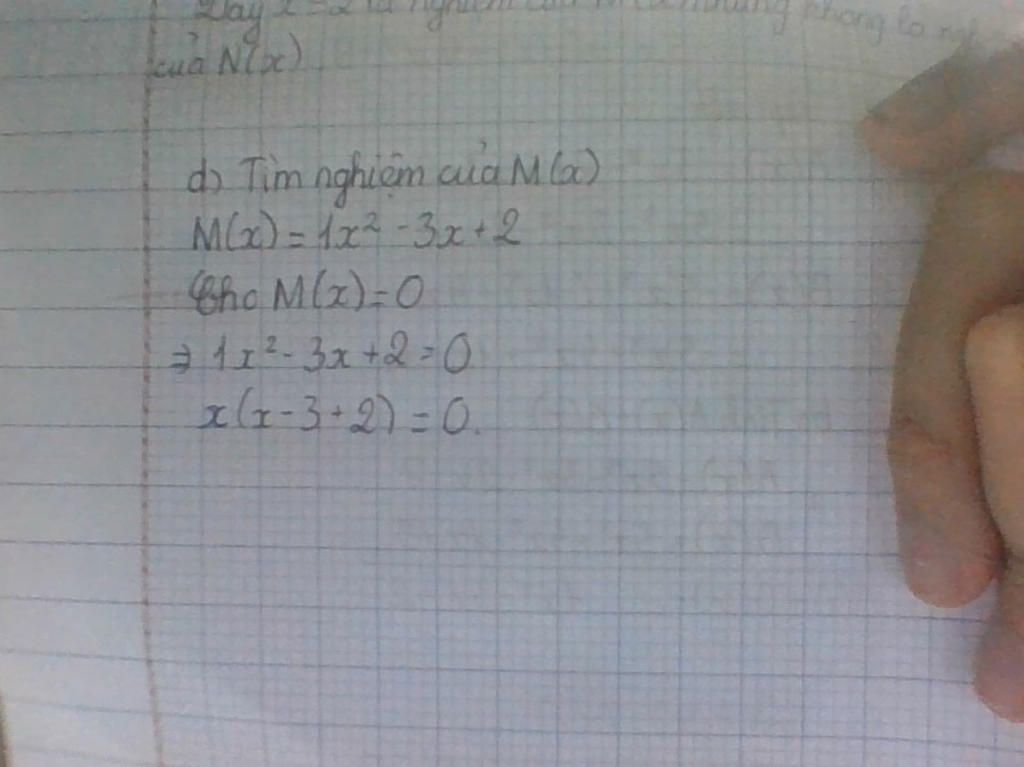 Vậy x = 2 là nghiệm của M(x) nhưng không là
của N(x)
d) Tìm nghiệm của M(x)
M(x) = 1x² - 3x + 2
Cho M(x) = 0
⇒ 1x² - 3x + 2 = 0
x(x - 3 + 2) = 0.